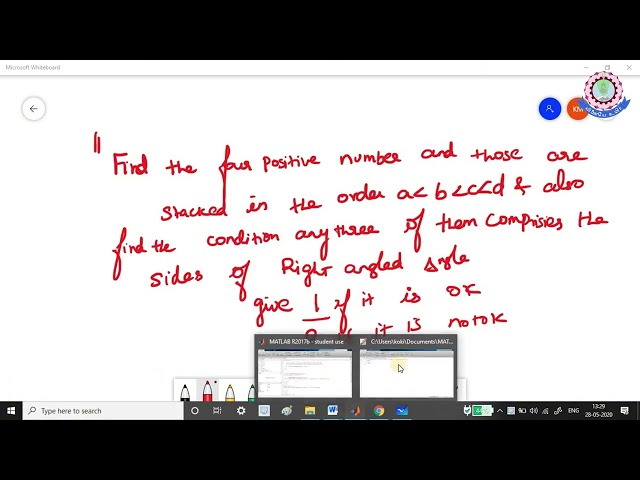 Microsoft Whiteboard
Find the four positive number and those are
stacked in the order a<b<c<d & also
find the condition any three of them comprises the
sides of Right angled
give 1 if it is ok
it is not ok
MATLAB R2017b - student use
C:\Users\koki\Documents\MAT...
Type here to search
ENG
13:29
28-05-2020